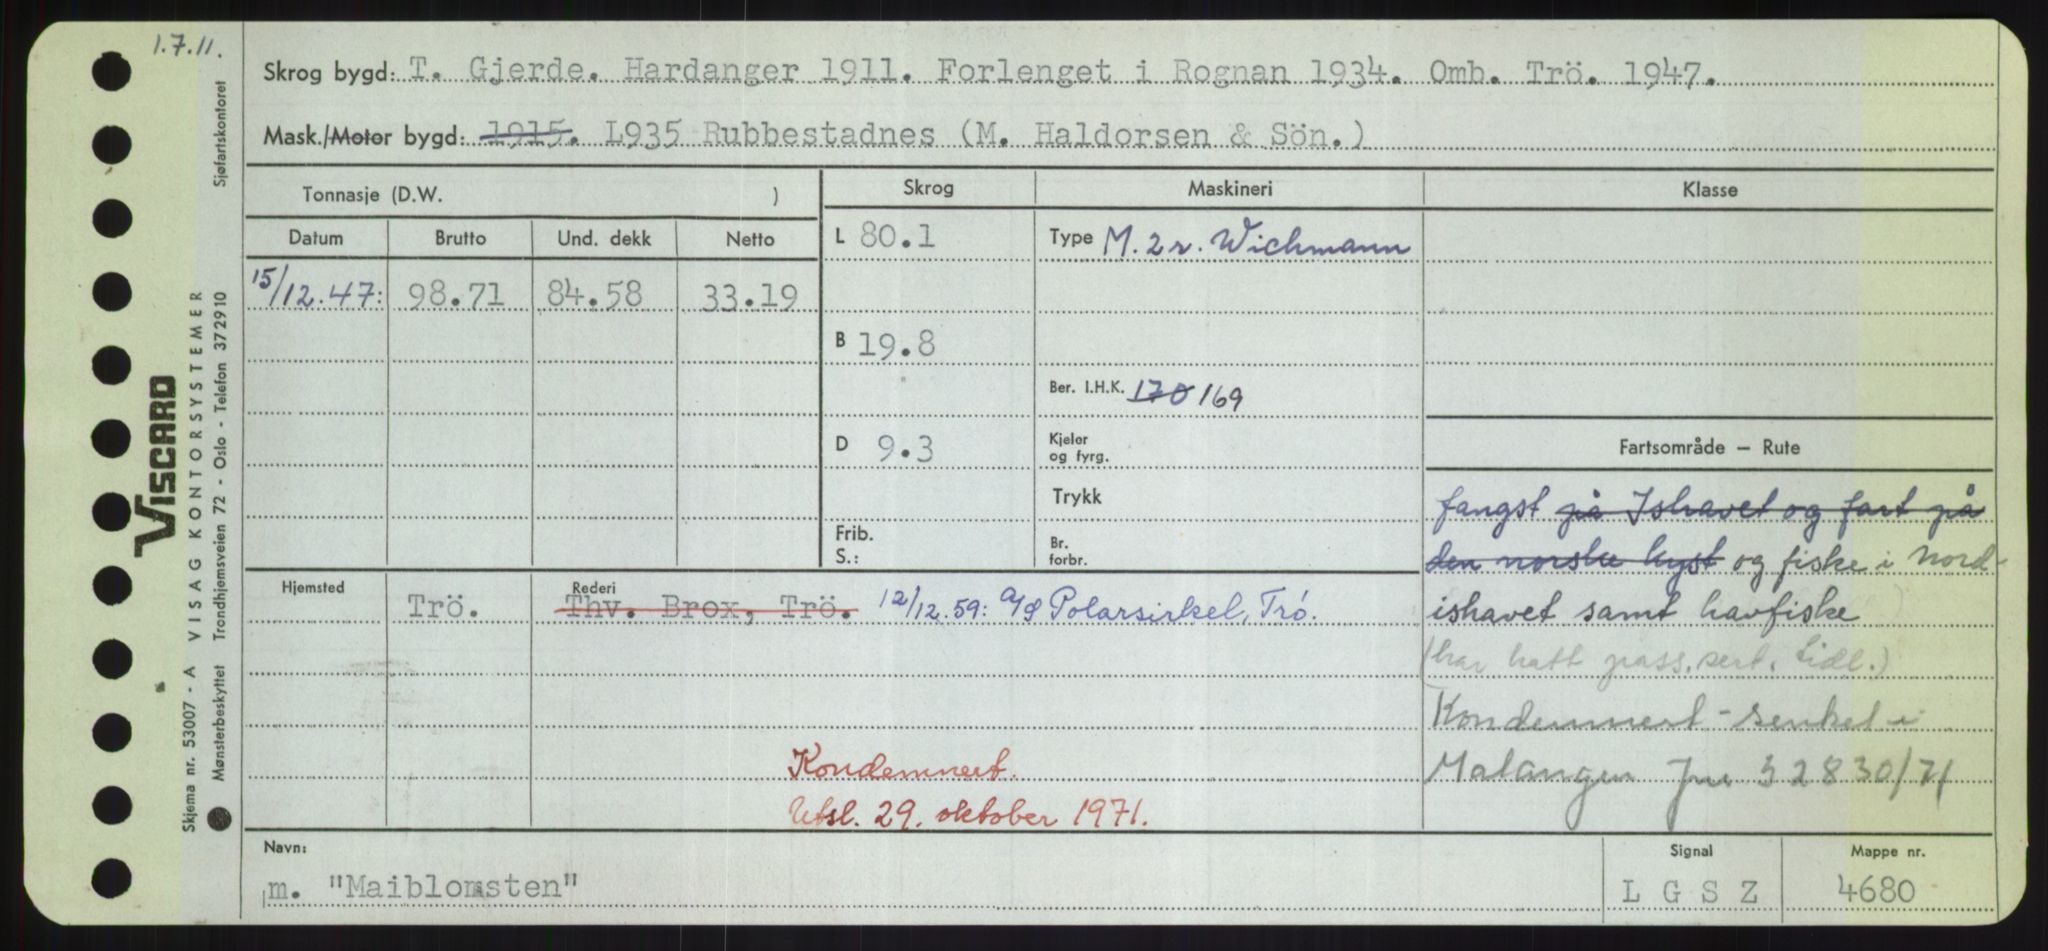 1.7.11.
Skrog bygd: T. Gjerde. Hardanger 1911. Forlenget i Rognan 1934. Omb. Trö. 1947.
Mask./Motor bygd: 1915. L935 Rubbestadnes (M. Haldorsen & Sön.)
Tonnasje (D.W. )
Skrog
Maskineri
Klasse
Datum Brutto Und. dekk Netto
15/12.47: 98.71 84.58 33.19
L 80.1
B 19.8
D 9.3
Frib.
S.:
Type M. 2 r. Wichmann
Ber. I.H.K. 170 169
Kjeler
og fyrg.
Trykk
Br.
forbr.
Fartsområde — Rute
fangst på Ishavet og fart på
den norske kyst og fiske i Nord-
ishavet samt havfiske
(har hatt pass.sert. tidl.)
Kondemnert - senket i
Malangen Jnr 32830/71
Hjemsted
Trö.
Rederi
Thv. Brox, Trö. 12/12.59: A/S Polarsirkel, Trö.
Kondemnert.
Utsl. 29. oktober 1971.
Navn:
m. "Maiblomsten"
Signal
L G S Z
Mappe nr.
4680
VISCARD
VISAG KONTORSYSTEMER
Skjema nr. 53007 - A
Mønsterbeskyttet
Trondhjemsveien 72 - Oslo - Telefon 372910
Sjøfartskontoret